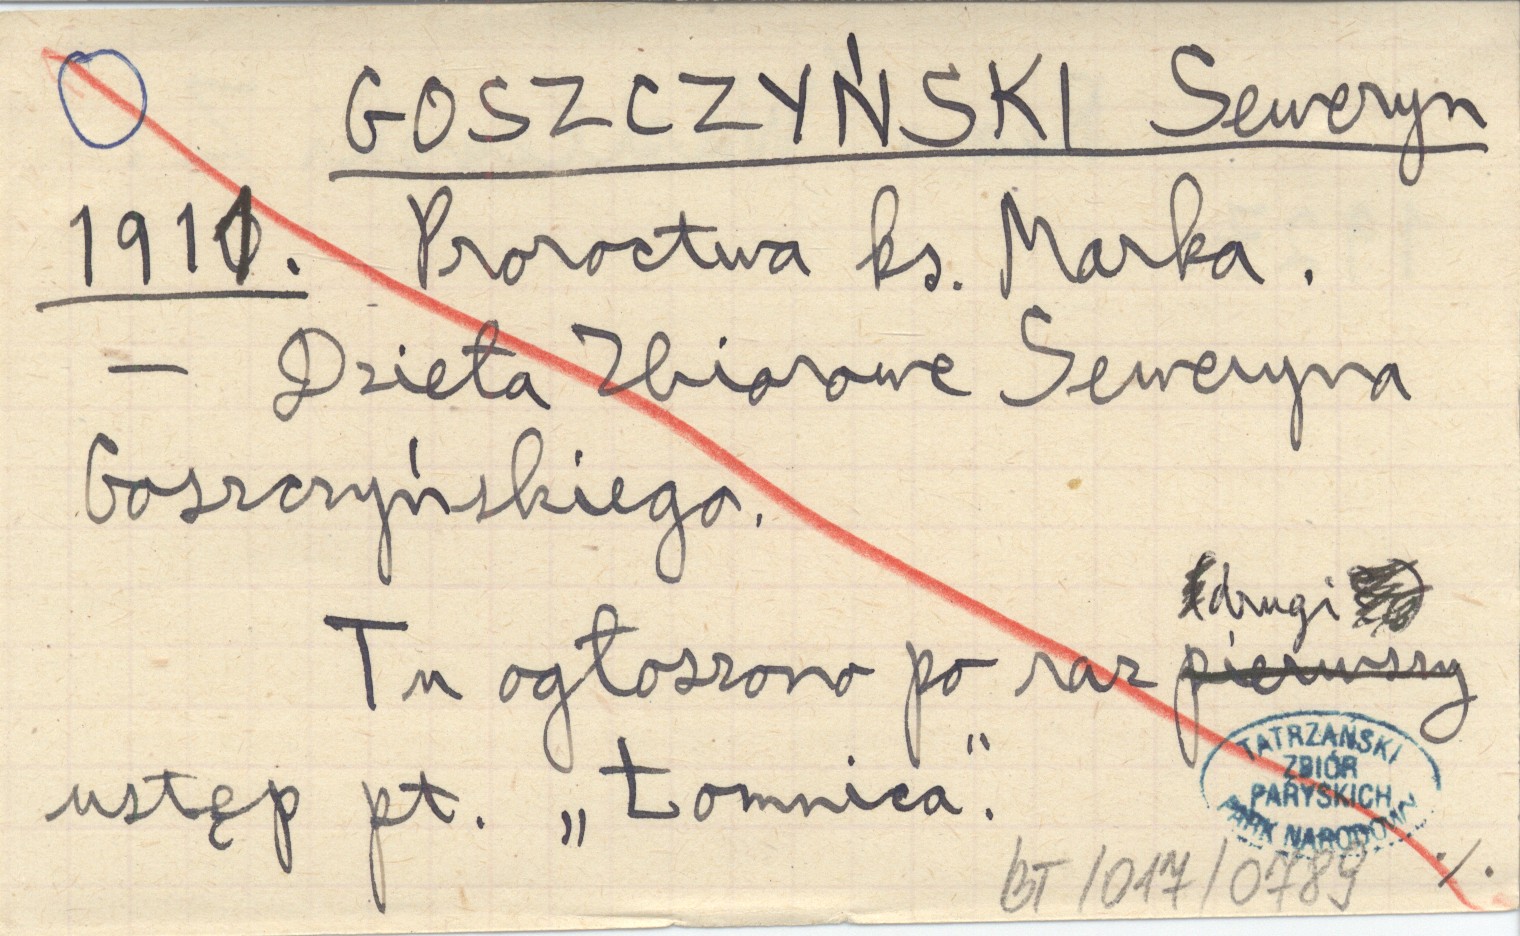 GOSZCZYŃSKI Seweryn
1911. Proroctwa ks. Marka.
— Dzieła Zbiorowe Seweryna
Goszczyńskiego.
drugi
Tu ogłoszono po raz pierwszy
ustęp pt. „Łomnica".
TATRZAŃSKI
ZBIÓR
PARYSKICH
PARK NARODOWY
BT/017/0789 ·/.